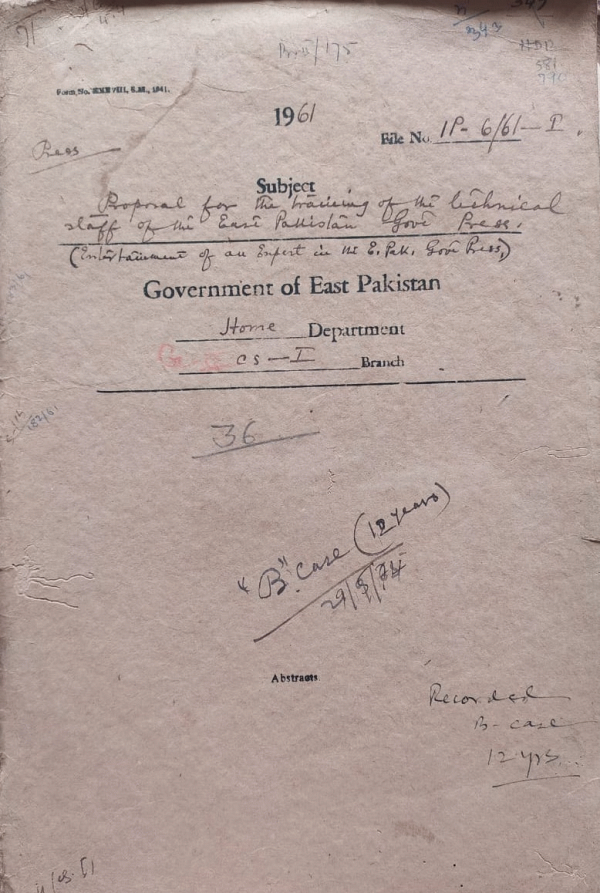 71
343
B-5/175
581
Form No. XXXVIII, S.M., 1941.
1961
File No. 1P-6/61-I.
Press
Subject
Proposal for the training of the technical
staff of the East Pakistan Govt Press.
(Entertainment of an Expert in the E. Pak. Govt Press)
Government of East Pakistan
Home Department
CS-I Branch
36
"B" Case (12 years)
Abstracts.
Recorded
B-case
12 yrs.